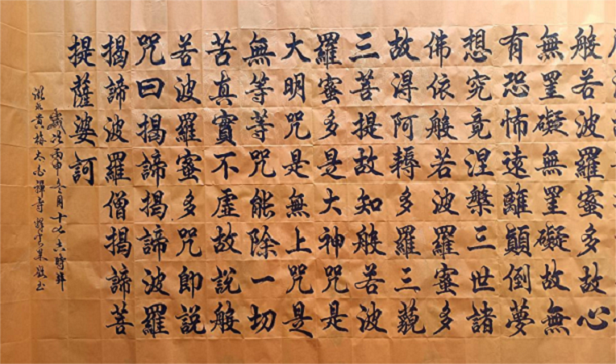 般若波羅蜜多故心
無罣礙無罣礙故無
有恐怖遠離顛倒夢
想究竟涅槃三世諸
佛依般若波羅蜜多
故得阿耨多羅三藐
三菩提故知般若波
羅蜜多是大神咒是
大明咒是無上咒是
無等等咒能除一切
苦真實不虛故說般
若波羅蜜多咒即說
咒曰揭諦揭諦波羅
揭諦波羅僧揭諦菩
提薩婆訶
歲次丙申